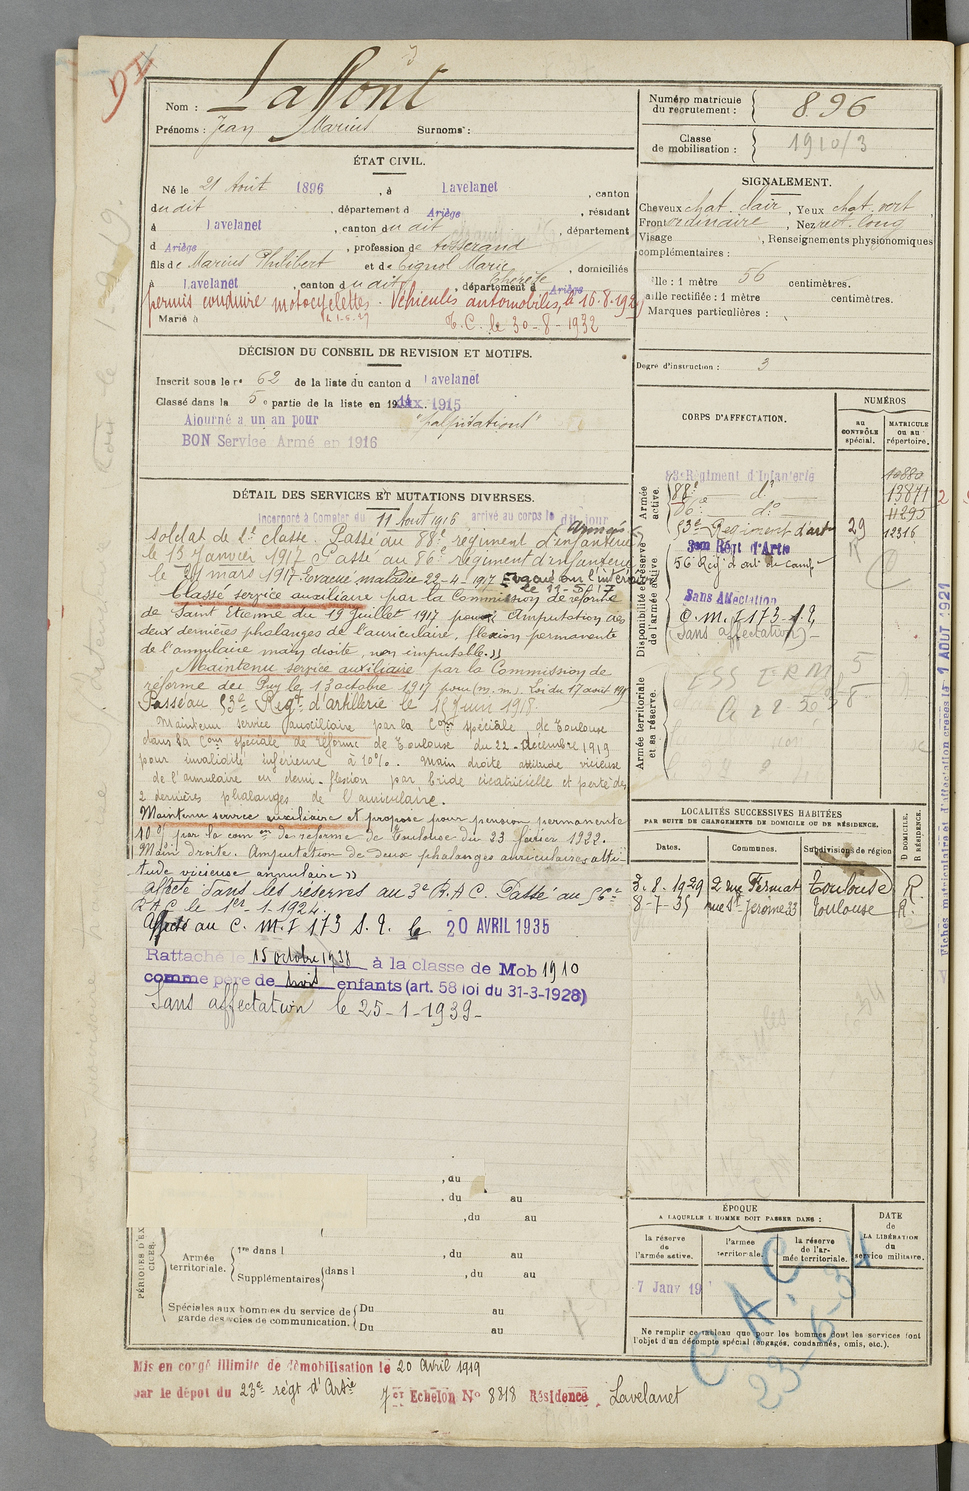 Nom : LaPont
Prénoms : Jean Marius Surnoms :
Numéro matricule du recrutement : 896
Classe de mobilisation : 1910/3
ÉTAT CIVIL.
Né le 21 Août 1896, à Lavelanet, canton
du dit, département d Ariège, résidant
à Lavelanet, canton du dit, département
d Ariège, profession de tisserand
fils de Marius Philibert et de Pignol Marie Thérèse, domiciliés
à Lavelanet, canton du dit, département d Ariège
permis conduire motocyclettes. Véhicules automobiles, le 16.8.1929
Marié à
T.C. le 30-8-1932
SIGNALEMENT.
Cheveux chat. clair, Yeux chat. vert,
Front ordinaire, Nez rect. long
Visage , Renseignements physionomiques
complémentaires :
Taille : 1 mètre 56 centimètres.
Taille rectifiée : 1 mètre centimètres.
Marques particulières :
Degré d'instruction : 3
DÉCISION DU CONSEIL DE REVISION ET MOTIFS.
Inscrit sous le no 62 de la liste du canton d Lavelanet
Classé dans la 5e partie de la liste en 1915
Ajourné a un an pour "palpitations"
BON Service Armé en 1916
DÉTAIL DES SERVICES ET MUTATIONS DIVERSES.
Incorporé à Compter du 11 Août 1916 arrivé au corps le dit jour
soldat de 2e classe. Passé au 88e régiment d'infanterie
le 13 Janvier 1917 Passé au 86e régiment d'infanterie
le 31 mars 1917 Evacué malade 22-4-1917 Evacué sur l'intérieur
le 11-5-17
Classé service auxiliaire par la Commission de réforme
de Saint Etienne du 19 juillet 1917 pour Amputation des
deux dernières phalanges de l'auriculaire, flexion permanente
de l'annulaire main droite, non imputable."
Maintenu service auxiliaire par la Commission de
réforme du Puy le 13 octobre 1917 pour (m. m.) Loi du 17 août 1917
Passé au 53e Regt d'artillerie le 16 Juin 1918
Maintenu service auxiliaire par la Con spéciale de Toulouse
dans sa Con spéciale de réforme de Toulouse du 22 décembre 1919
pour invalidité inférieure à 10%. Main droite attitude vicieuse
de l'annulaire en demi-flexion par bride cicatricielle et perte des
2 dernières phalanges de l'auriculaire.
Maintenu service auxiliaire et proposé pour pension permanente
10% par la com on de réforme de Toulouse du 23 février 1922.
Main droite. Amputation de deux phalanges auriculaires atti-
tude vicieuse annulaire"
affecté dans les réserves au 3e R.A.C. Passé au 56e
R.A.C le 1er-1-1924.
Affecté au C.M.I 173 S.I. le 20 AVRIL 1935
Rattaché le 15 octobre 1938 à la classe de Mob 1910
comme père de trois enfants (art. 58 loi du 31-3-1928)
Sans affectation le 25-1-1939-
CORPS D'AFFECTATION.
NUMÉROS
au CONTRÔLE spécial.
MATRICULE ou au répertoire.
Armée active
83e Régiment d'Infanterie 10880
88e do 13871
86e do 11295
53e Régiment d'art 29 12316
Disponibilité et réserve de l'armée active
3eme Régt d'Artie R
56 Reg d'art de camp
Sans Affectation
C.M.I 173 S.I.
(Sans affectation)
Armée territoriale et sa réserve.
Fiches matriculaire et d'affectation créées le 1 AOUT 1927
LOCALITÉS SUCCESSIVES HABITÉES
PAR SUITE DE CHANGEMENTS DE DOMICILE OU DE RÉSIDENCE.
Dates. Communes. Subdivisions de région D DOMICILE. R RÉSIDENCE.
3.8.1929 2 rue Fermat Toulouse R
8-7-35 rue St Jerome 33 Toulouse R.
, au
, du au
, du au
PÉRIODES D'EXERCICES.
Armée territoriale. 1re dans l , du au
Supplémentaires dans l , du au
Spéciales aux hommes du service de garde des voies de communication. Du au
Du au
ÉPOQUE
A LAQUELLE L'HOMME DOIT PASSER DANS :
la réserve de l'armée active. l'armée territoriale. la réserve de l'armée territoriale.
DATE de LA LIBÉRATION du service militaire.
7 Janv 19
C.A.C
Ne remplir ce tableau que pour les hommes dont les services font
l'objet d'un décompte spécial (engagés, condamnés, omis, etc.).
Mis en congé illimité de démobilisation le 20 Avril 1919
par le dépot du 23e régt d'Artie 7er Echelon No 8818 Résidence, Lavelanet